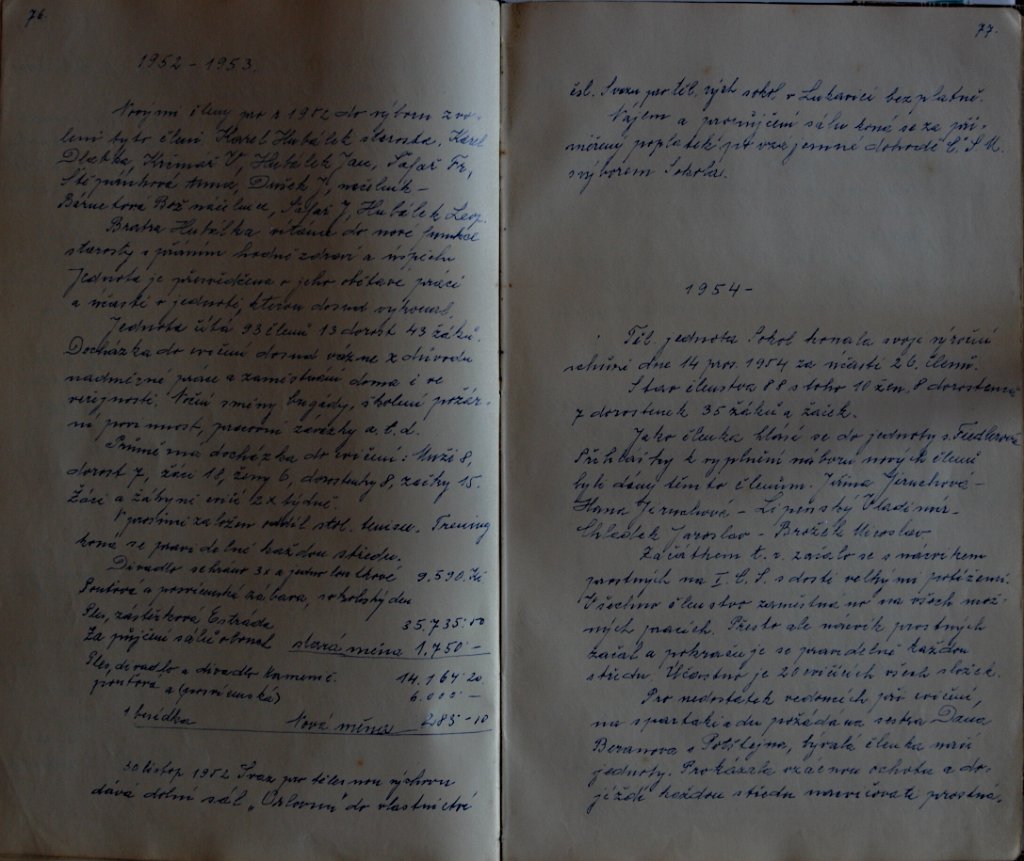 76.
1952 – 1953.
Novými členy pro r 1952 do výboru zvo-
leni tyto členi Karel Hubálek starosta, Karel
Dlabka, Křimař V, Hubálek Jan, Šafař Fr,
Štěpánková Anna, Dušek J, náčelník –
Bernetová Bož náčelnice, Šafař J, Hubálek Leop.
Bratra Hubálka vítáme do nové funkce
starosty s přáním hodně zdraví a úspěchu
Jednota je přesvědčena o jeho obětavé práci
a účasti v jednotě, kterou dosud vykonal.
Jednota čítá 93 členů 13 dorost 43 žáků.
Docházka do cvičení dosud vázne z důvodu
nadměrné práce a zaměstnání doma i ve
veřejnosti. Noční směny brigády, školení požár-
ní povinnost, pracovní závazky a.t.d.
Průměrná docházka do cvičení: Muži 8,
dorost 7, žáci 18, ženy 6, dorostenky 8, žačky 15.
Žáci a žákyně cvičí 2x týdně.
V prosinci založen oddíl stol. tenisu. Trening
koná se pravidelně každou středu.
Divadlo sehráno 3x a jedno loutkové 9.590.Kč
Pouťová a posvícenská zábava, sokolský den
Ples, zástěrková Estráda 35,735.00
Za půjčení sálu obnos stará měna 1.750 –
Ples, divadlo a divadlo Kameně. 14.164.20
pouťová a (posvícenská) 6.000 –
1 besídka Nová měna 285 – 10
30 listop 1952 Svaz pro tělesnou výchovu
dává dolní sál „Orlovnu" do vlastnictví
77.
čsl. Svazu pro těl. vých sokol v Lukavici bezplatně.
Nájem a pronajjčení sálu koná se za při-
měřený poplatek po vzájemné dohodě Č.S.M.
s výborem Sokola.
1954 –
Těl. jednota Sokol konala svoje výroční
schůzi dne 14 pros. 1954 za účasti 26. členů.
Stav členstva 88 s toho 10 žen. 8 dorostenců
7 dorostenek 35 žáků a žaček.
Jako členka hlásí se do jednoty s. Fiedlerová
Přihlášky k vyplnění náboru nových členů
byli dány těmto členům. Jiřina Jiruchová –
Hana Jiruchová – Lipenský Vladimír –
Chládek Jaroslav – Brožek Miroslav
Začátkem t. r. začalo se s nácvikem
prostných na I. C. S. s dosti velkými potížemi.
Všechno členstvo zaměstnáno na všech mož-
ných pracích. Přesto ale nácvik prostných
začal a pokračuje se pravidelně každou
středu. Účastno je 20 cvičících všech složek.
Pro nedostatek vedoucích při cvičení,
na spartakiadu požádána sestra Dana
Beranova s Potštejna, bývalá členka naší
jednoty. Prokázala vzácnou ochotu a do-
jíždí každou středu nacvičovati prostná,